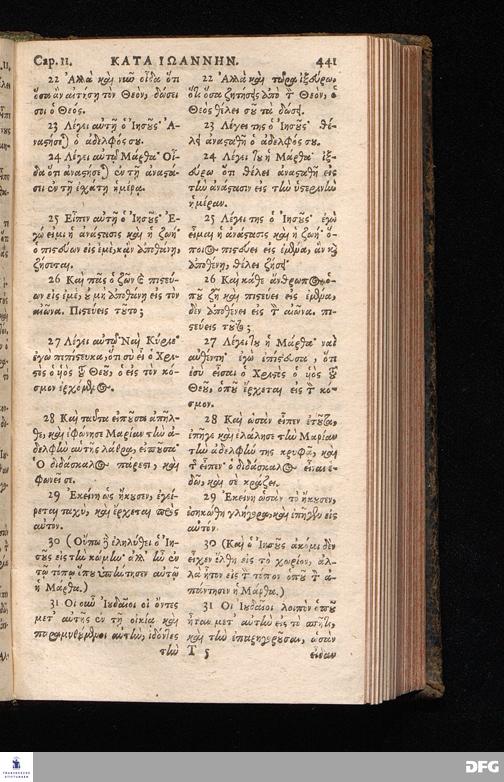 Cap. 11. ΚΑΤΑ ΙΩΑΝΝΗΝ. 441
22 Ἀλλὰ καὶ νῦν οἶδα ὅτι
ὅσα ἂν αἰτήσῃ τὸν Θεὸν, δώσει
σοι ὁ Θεός.
23 Λέγει αὐτῇ ὁ Ἰησοῦς· Ἀ-
ναστήσεται ὁ ἀδελφός σου.
24 Λέγει αὐτῷ Μάρθα· Οἶ-
δα ὅτι ἀναστήσεται ἐν τῇ ἀναστά-
σει ἐν τῇ ἐσχάτῃ ἡμέρᾳ.
25 Εἶπεν αὐτῇ ὁ Ἰησοῦς· Ἐ-
γώ εἰμι ἡ ἀνάστασις καὶ ἡ ζωή·
ὁ πιστεύων εἰς ἐμὲ, κἂν ἀποθάνῃ,
ζήσεται.
26 Καὶ πᾶς ὁ ζῶν καὶ πιστεύ-
ων εἰς ἐμὲ, οὐ μὴ ἀποθάνῃ εἰς τὸν
αἰῶνα. Πιστεύεις τοῦτο;
27 Λέγει αὐτῷ· Ναὶ Κύριε·
ἐγὼ πεπίστευκα, ὅτι σὺ εἶ ὁ Χρι-
στὸς ὁ ὑὸς τοῦ Θεοῦ, ὁ εἰς τὸν κό-
σμον ἐρχόμενος.
28 Καὶ ταῦτα εἰποῦσα ἀπῆλ-
θε, καὶ ἐφώνησε Μαρίαν τὴν ἀ-
δελφὴν αὐτῆς λάθρα, εἰποῦσα·
Ὁ διδάσκαλος πάρεστι, καὶ
φωνεῖ σε.
29 Ἐκείνη ὡς ἤκουσεν, ἐγεί-
ρεται ταχὺ, καὶ ἔρχεται πρὸς
αὐτόν.
30 (Οὔπω δὲ ἐληλύθει ὁ Ἰη-
σοῦς εἰς τὴν κώμην· ἀλλ' ἦν ἐν
τῷ τόπῳ ὅπου ὑπήντησεν αὐτῷ
ἡ Μάρθα.)
31 Οἱ οὖν Ἰουδαῖοι οἱ ὄντες
μετ' αὐτῆς ἐν τῇ οἰκίᾳ καὶ
παραμυθούμενοι αὐτὴν, ἰδόντες
τὴν
22 Ἀλλὰ καὶ τώρα ἰξεύρω,
ὅτι ὅσα ζητήσῃς ἀπὸ τὸν Θεὸν, ὁ
Θεὸς θέλει σοῦ τὰ δώσῃ.
23 Λέγει της ὁ Ἰησοῦς· θέ-
λει ἀναστηθῆ ὁ ἀδελφός σου.
24 Λέγει του ἡ Μάρθα· ἰξ-
εύρω ὅτι θέλει ἀναστηθῆ εἰς
τὴν ἀνάστασιν εἰς τὴν ὑστερινὴν
ἡμέραν.
25 Λέγει της ὁ Ἰησοῦς· ἐγὼ
εἶμαι ἡ ἀνάστασις καὶ ἡ ζωή· ὅ-
ποιος πιστεύει εἰς ἐμένα, ἂν καὶ
ἀποθάνῃ, θέλει ζήσῃ·
26 Καὶ κάθε ἄνθρωπος ὁ-
ποῦ ζῆ καὶ πιστεύει εἰς ἐμένα,
δὲν ἀποθένει εἰς τὸν αἰῶνα. πι-
στεύεις τοῦτο;
27 Λέγει του ἡ Μάρθα· ναὶ
αὐθέντη· ἐγὼ ἐπίστευσα, ὅτι
ἐσὺ εἶσαι ὁ Χριστὸς ὁ ὑὸς τοῦ
Θεοῦ, ὁποῦ ἔρχεται εἰς τὸν κό-
σμον.
28 Καὶ ὡσὰν εἶπεν ἐτοῦτα,
ἐπῆγε καὶ ἐλάλησε τὴν Μαρίαν
τὴν ἀδελφήν της κρυφὰ, καὶ
τῆς εἶπεν· ὁ διδάσκαλος εἶναι ε-
δῶ, καὶ σὲ κράζει.
29 Ἐκείνη ὡσὰν τὸ ἤκουσεν,
ἐσηκώθη γλήγορα, καὶ ἐπῆγεν εἰς
αὐτόν.
30 (Καὶ ὁ Ἰησοῦς ἀκόμι δὲν
εἶχεν ἔλθῃ εἰς τὸ χωρίον, ἀλ-
λὰ ἦτον εἰς τὸν τόπον ὁποῦ τὸν ἀ-
πάντησεν ἡ Μάρθα.)
31 Οἱ Ἰουδαῖοι λοιπὸν ὁποῦ
ἦταν μετ' αὐτὴν εἰς τὸ σπῆτι,
καὶ τὴν ἐπαρηγοροῦσαν, ὡσὰν
T 5 εἶδαν
DFG